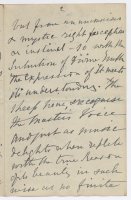 2
but from unconscious
& mystic right perception
or instinct - so with the
Intuition of Divine Truth
the expression of it meets
its understanding. The
sheep hear, & recognise
the Master's Voice
And just as music
delights when replete
with the true
of beauty, in such
wise as no finite